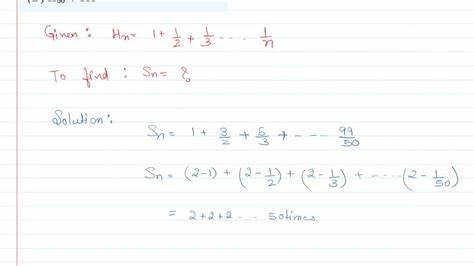 Given : Hn = 1 + 1/2 + 1/3 .... 1/n
To find : Sn = ?
Solution :
Sn = 1 + 3/2 + 5/3 + ---- 99/50
Sn = (2-1) + (2 - 1/2) + (2 - 1/3) + ----- (2 - 1/50)
= 2+2+2 ... 50times